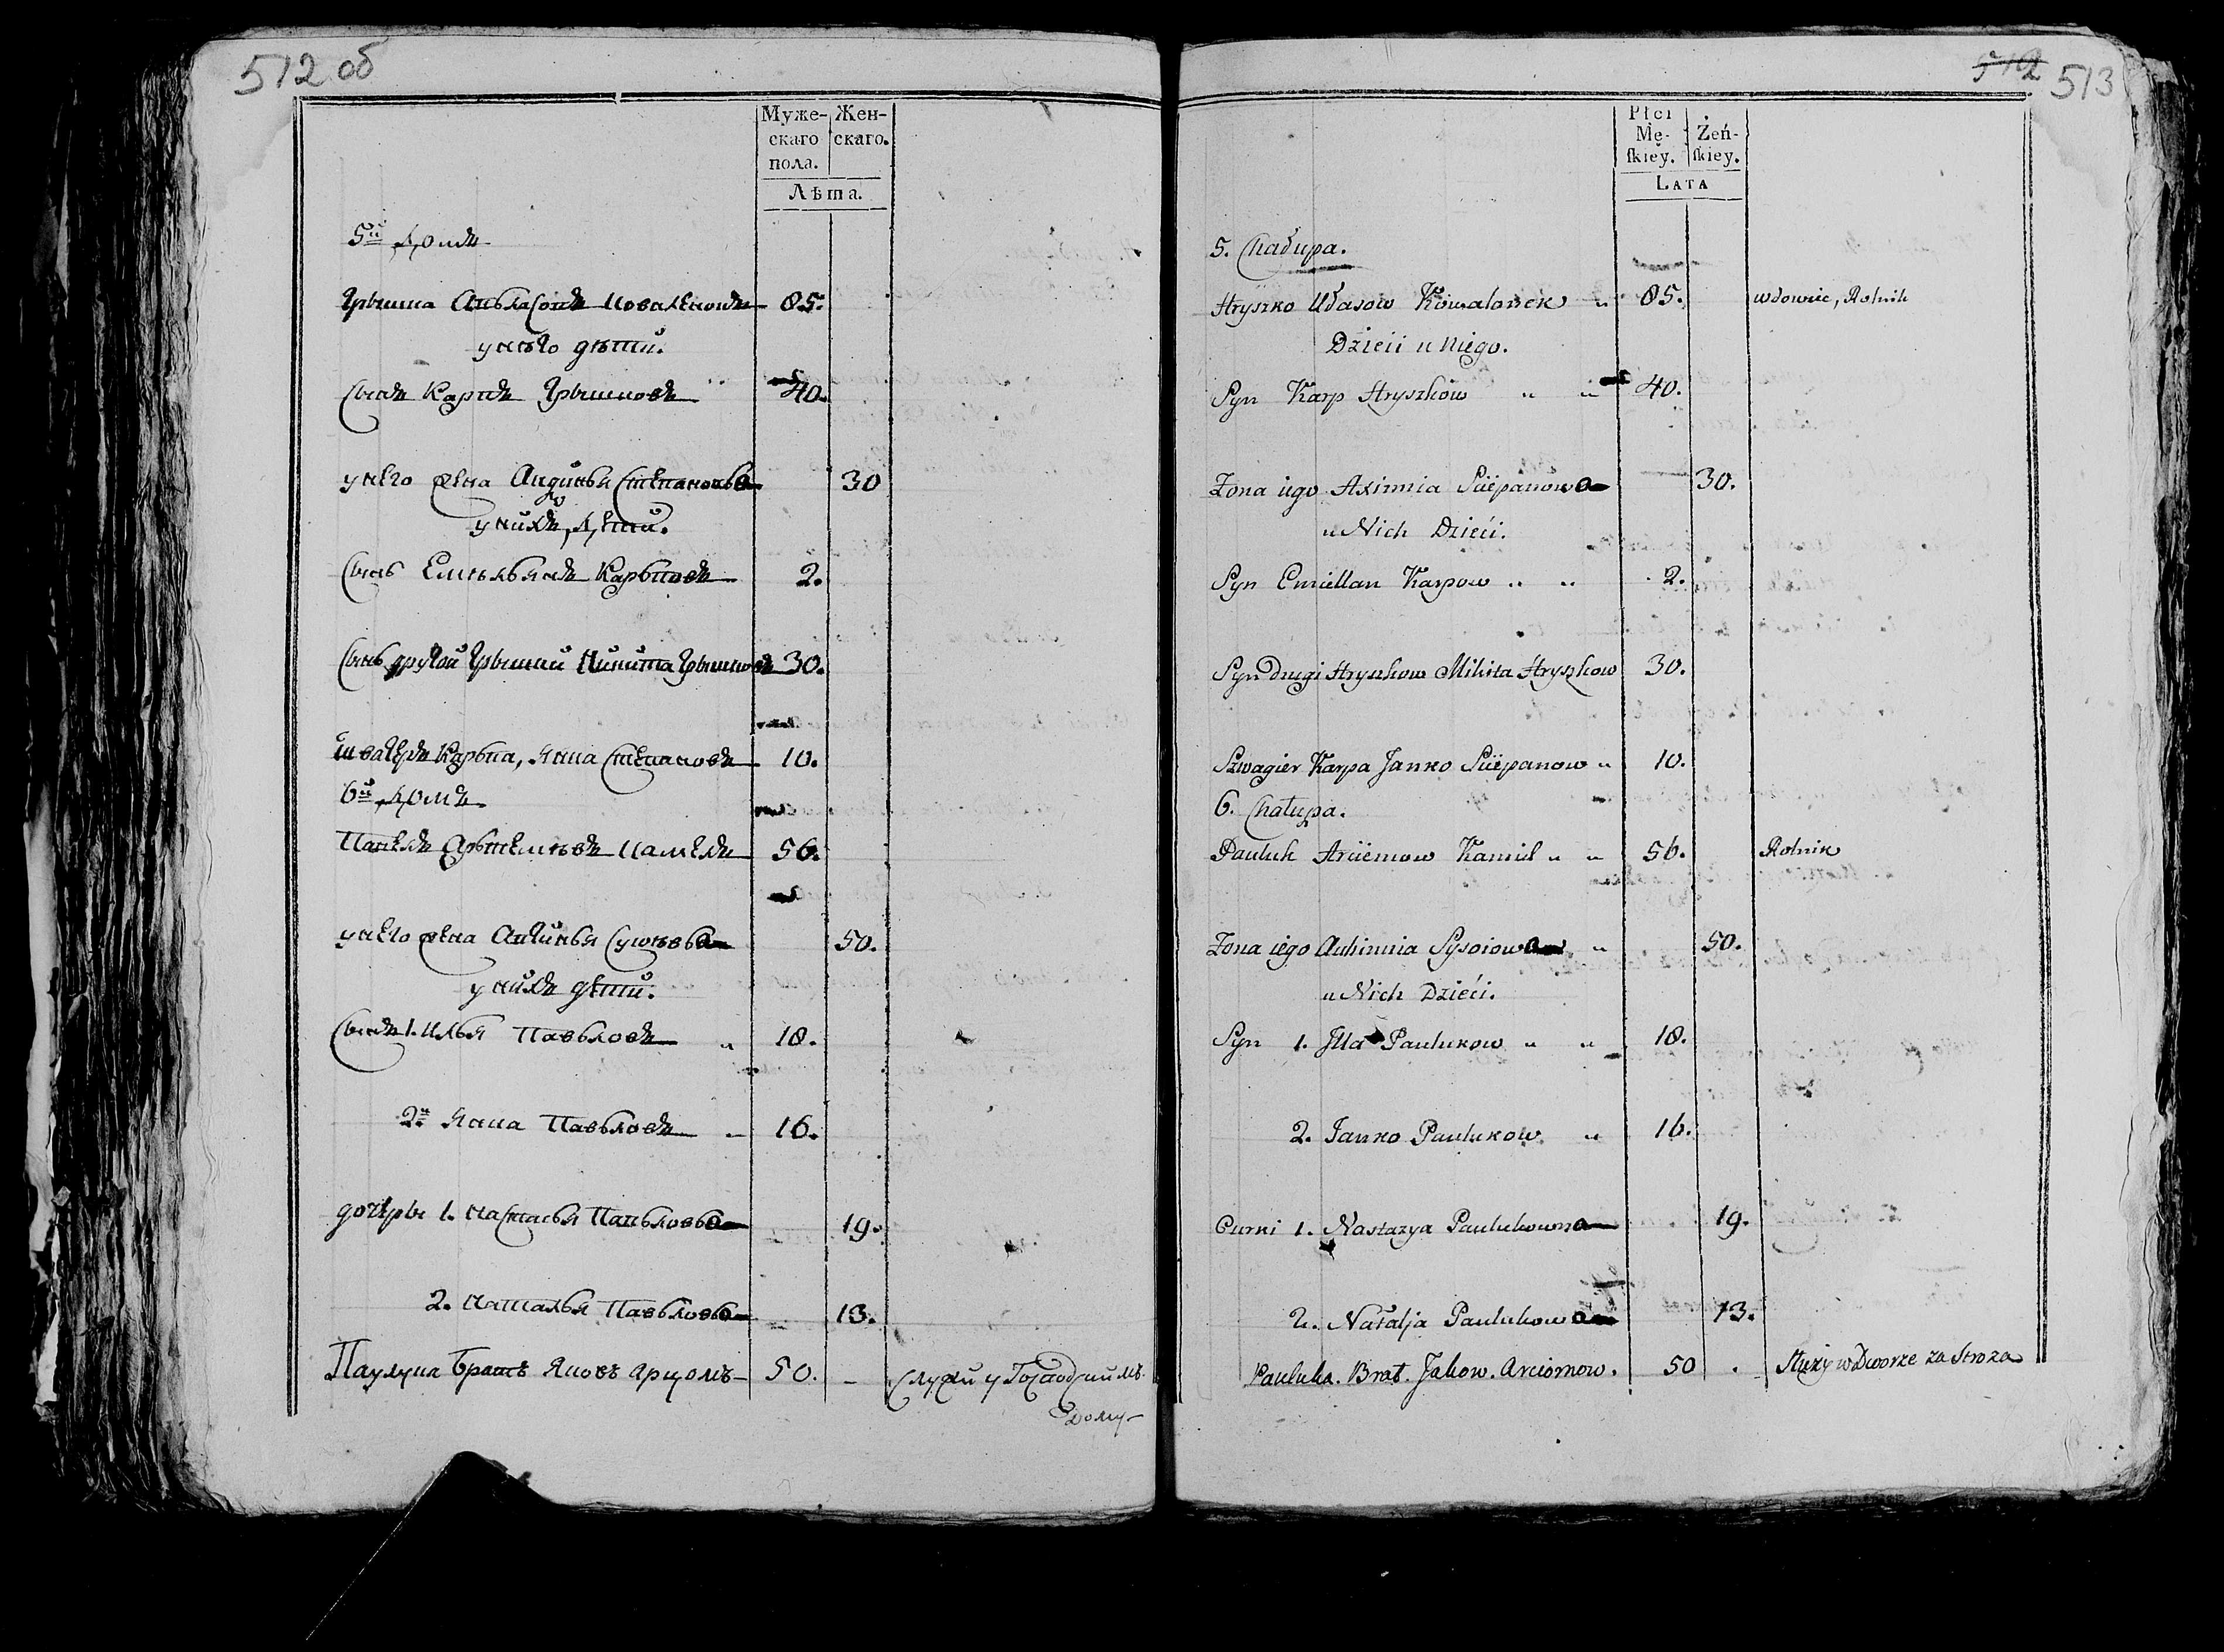 512 об
Муже-
скаго
пола.
Жен-
скаго.
Лѣта.
5й домъ
85.
у него дѣти.
Сынъ Карпъ Грышковъ 40.
у него жена Степанова 30
у нихъ дѣти.
Сынъ Емельянъ Карповъ 2.
Сынъ другой Грышки Никита Грышковъ 30.
Швагеръ Карпа, Янка Степановъ 10.
6й домъ
56.
у него жена 50.
у нихъ дѣти.
Сынъ 1. Илья Павловъ „ 18.
2й Янка Павловъ 16.
дочеры 1. Настасья Павлова 19.
2. Наталья Павлова 13.
Паулука братъ Яковъ Арцомъ 50. –
дому
512 513
Płci
Mę-
skiey.
Żeń-
skiey.
LATA
5. Chałupa.
Hryszko Kowalonek „ 85. wdowiec, Rolnik
Dzieci u Niego.
Syn Karp Hryszkow „ „ 40.
Zona iego Axinnia Sciepanowa 30.
u Nich Dzieći.
Syn Emiellan Karpow „ „ 2.
Syn Drugi Hryszkow Mikita Hryszkow 30.
Szwagier Karpa Janko Sciepanow „ 10.
6. Chałupa.
Pauluk Arciemow Kamiel „ „ 56. Rolnik
Zona iego Auhinnia Sysoiowa „ 50.
u Nich Dzieći.
Syn 1. Jlla Paulukow „ „ 18.
2. Janko Paulukow „ 16.
Curki 1. Nastazya Paulukowna 19.
2. Natalja Paulukowa 13.
Pauluka. Brat. Jakow. Arciomow. 50 . Służy w Dworze za Stroza